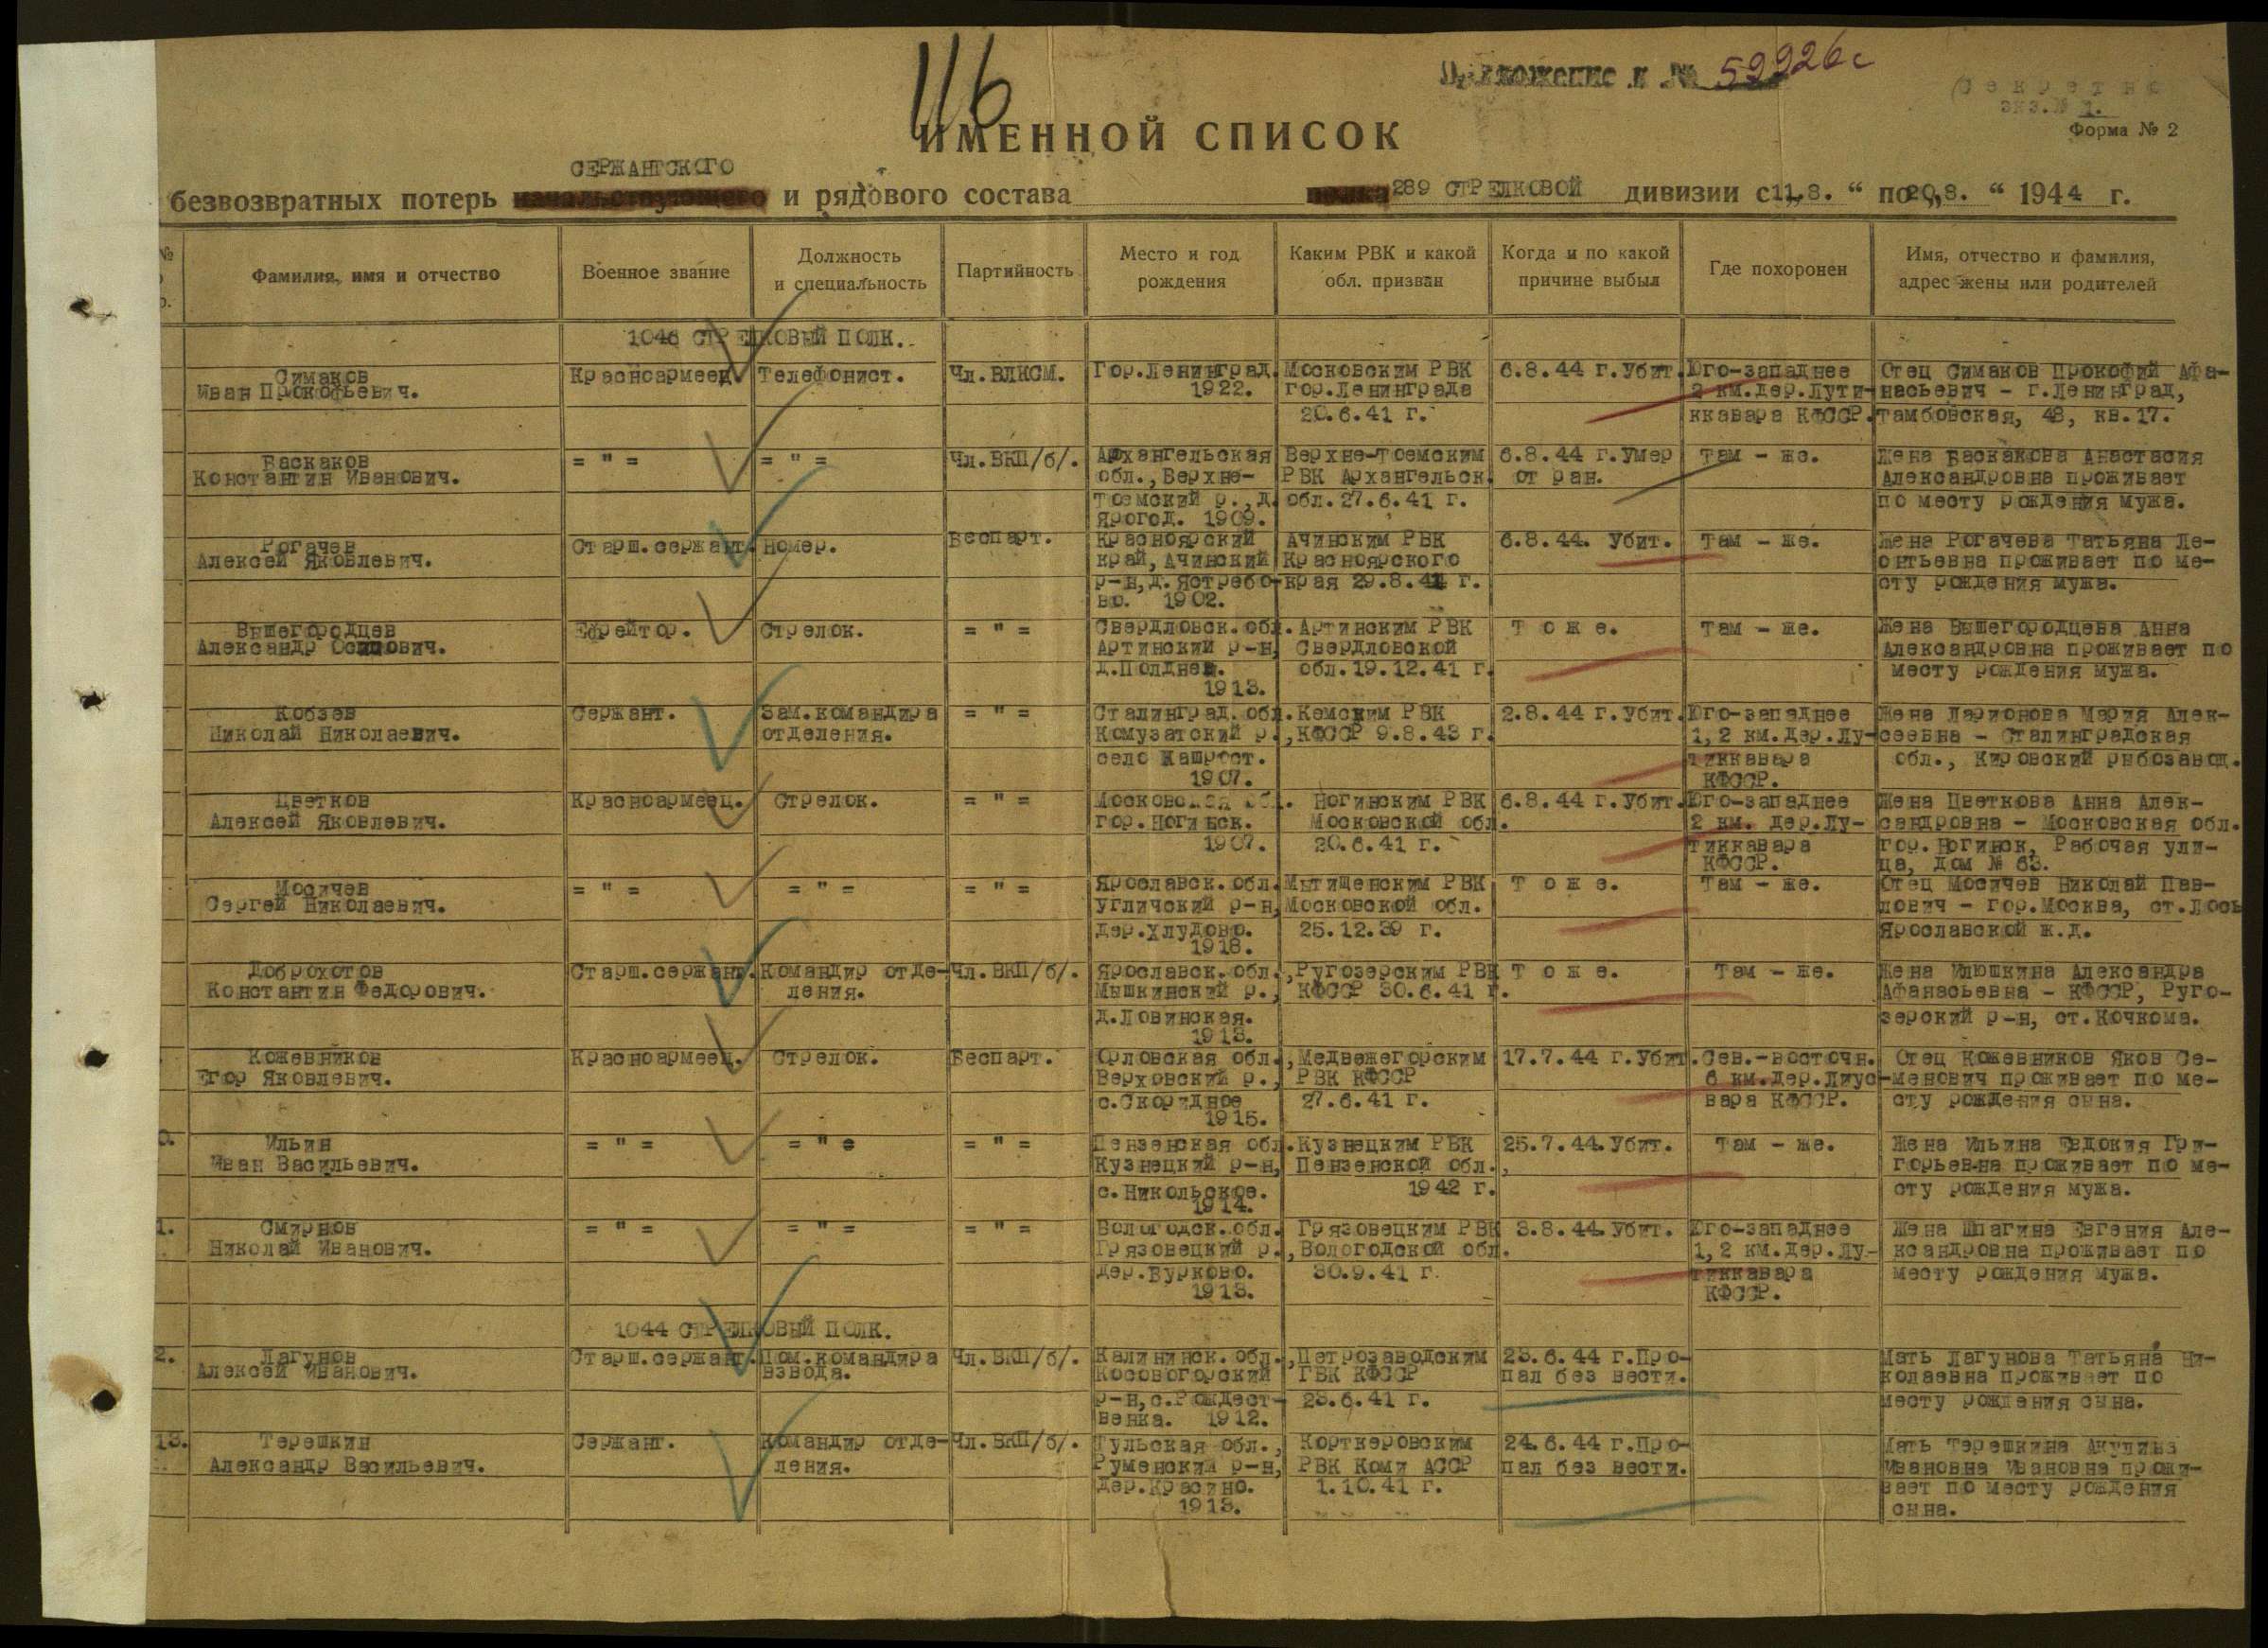 116
Приложение к № 52926с
Секретно
экз.№ 1.
Форма № 2
ИМЕННОЙ СПИСОК
СЕРЖАНТСКОГО
безвозвратных потерь начальствующего и рядового состава полка 289 СТРЕЛКОВОЙ дивизии с 11.8. “ по 20.8. “ 1944 г.
№
Фамилия, имя и отчество
Военное звание
Должность
и специальность
Партийность
Место и год
рождения
Каким РВК и какой
обл. призван
Когда и по какой
причине выбыл
Где похоронен
Имя, отчество и фамилия,
адрес жены или родителей
1046 СТРЕЛКОВЫЙ ПОЛК.
Симаков Красноармеец. Телефонист. Чл.ВЛКСМ. Гор.Ленинград Московским РВК 6.8.44 г.Убит. Юго-западнее Отец Симаков Прокофий Афа-
Иван Прокофьевич. 1922. гор.Ленинграда 2 км.дер.Лути- насьевич - г.Ленинград,
20.6.41 г. ккавара КФССР. Тамбовская, 48, кв.17.
Баскаков = " = = " = Чл.ВКП/б/. Архангельская Верхне-Тоемским 6.8.44 г.Умер Там - же. Жена Баскакова Анастасия
Константин Иванович. обл.,Верхне- РВК Архангельск. от ран. Александровна проживает
Тоемский р.,д. обл.27.6.41 г. по месту рождения мужа.
Ярогод. 1909.
Рогачев Старш.сержант. Номер. Беспарт. Красноярский Ачинским РВК 6.8.44. Убит. Там - же. Жена Рогачева Татьяна Ле-
Алексей Яковлевич. край,Ачинский Красноярского онтьевна проживает по ме-
р-н,д.Ястребо- края 29.8.41 г. сту рождения мужа.
во. 1902.
Вышегородцев Ефрейтор. Стрелок. = " = Свердловск.обл. Артинским РВК Т о ж е. Там - же. Жена Вышегородцева Анна
Александр Осипович. Артинский р-н, Свердловской Александровна проживает по
д.Полднев. обл.19.12.41 г. месту рождения мужа.
1913.
Кобзев Сержант. Зам.командира = " = Сталинград.обл. Кемским РВК 2.8.44 г.Убит. Юго-западнее Жена Ларионова Мария Алек-
Николай Николаевич. отделения. Комузатский р., КФССР 9.8.43 г. 1,2 км.дер.Лу- сеевна - Сталинградская
село Кашрост. тиккавара обл., Кировский рыбозавод.
1907. КФССР.
Цветков Красноармеец. Стрелок. = " = Московская обл. Ногинским РВК 6.8.44 г.Убит. Юго-западнее Жена Цветкова Анна Алек-
Алексей Яковлевич. гор.Ногинск. Московской обл. 2 км. дер.Лу- сандровна - Московская обл.
1907. 20.6.41 г. тиккавара гор.Ногинск, Рабочая ули-
КФССР. ца, дом № 63.
Мосичев = " = = " = = " = Ярославск.обл. Мытищенским РВК Т о ж е. Там - же. Отец Мосичев Николай Пав-
Сергей Николаевич. Угличский р-н, Московской обл. лович - гор.Москва, ст.Лось
дер.Хлудово. 25.12.39 г. Ярославской ж.д.
1918.
Доброхотов Старш.сержант. Командир отде- Чл.ВКП/б/. Ярославск.обл., Ругозерским РВК Т о ж е. Там - же. Жена Илюшкина Александра
Константин Федорович. ления. Мышкинский р., КФССР 30.6.41 г. Афанасьевна - КФССР, Руго-
д.Ловинская. зерский р-н, ст.Кочкома.
1913.
Кожевников Красноармеец. Стрелок. Беспарт. Орловская обл., Медвежегорским 17.7.44 г.Убит. Сев.-восточн. Отец Кожевников Яков Се-
Егор Яковлевич. Верховский р., РВК КФССР 6 км.дер.Лиус- менович проживает по ме-
с.Скородное 27.6.41 г. вара КФССР. сту рождения сына.
1915.
Ильин = " = = " = = " = Пензенская обл. Кузнецким РВК 25.7.44.Убит. Там - же. Жена Ильина Евдокия Гри-
Иван Васильевич. Кузнецкий р-н, Пензенской обл., горьевна проживает по ме-
с.Никольское. 1942 г. сту рождения мужа.
1914.
1. Смирнов = " = = " = = " = Вологодск.обл. Грязовецким РВК 3.8.44.Убит. Юго-западнее Жена Шпагина Евгения Але-
Николай Иванович. Грязовецкий р., Вологодской обл. 1,2 км.дер.Лу- ксандровна проживает по
дер.Бурково. 30.9.41 г. тиккавара месту рождения мужа.
1913. КФССР.
1044 СТРЕЛКОВЫЙ ПОЛК.
2. Лагунов Старш.сержант. Пом.командира Чл.ВКП/б/. Калининск.обл., Петрозаводским 23.6.44 г.Про- Мать Лагунова Татьяна Ни-
Алексей Иванович. взвода. Косовогорский ГВК КФССР пал без вести. колаевна проживает по
р-н,с.Рождест- 23.6.41 г. месту рождения сына.
венка. 1912.
13. Терешкин Сержант. Командир отде- Чл.ВКП/б/. Тульская обл., Корткеровским 24.6.44 г.Про- Мать Терешкина Акулина
Александр Васильевич. ления. Руменский р-н, РВК Коми АССР пал без вести. Ивановна Ивановна прожи-
дер.Красино. 1.10.41 г. вает по месту рождения
1913. сына.